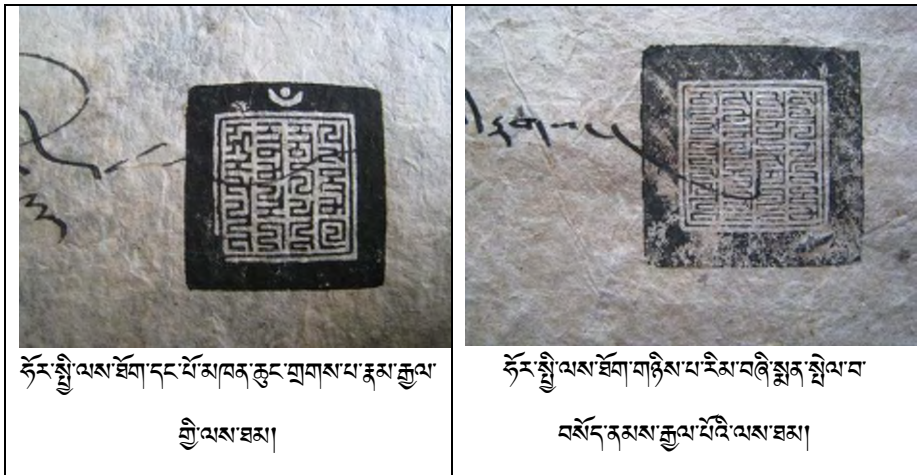 ཧོར་སྤྱི་ལས་ཐོག་དང་པོ་མཁན་ཆུང་གྲགས་པ་རྣམ་རྒྱལ་
གྱི་ལས་ཐམ།
ཧོར་སྤྱི་ལས་ཐོག་གཉིས་པ་རིམ་བཞི་སྨན་སྤེལ་བ་
བསོད་ནམས་རྒྱལ་པོའི་ལས་ཐམ།